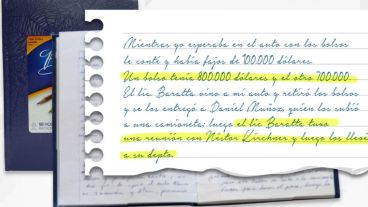 Mientras yo esperaba en el auto con los bolsos
le conté y había fajos de 100.000 dólares.
Un bolso tenía 800.000 dólares y el otro 700.000.
El lic Baratta vino a mi auto y retiró los bolsos
y se los entregó a Daniel Muñoz, quien los subió
a una camioneta; luego el lic Baratta tuvo
una reunión con Néstor Kirchner y luego los llevé
a su depto.